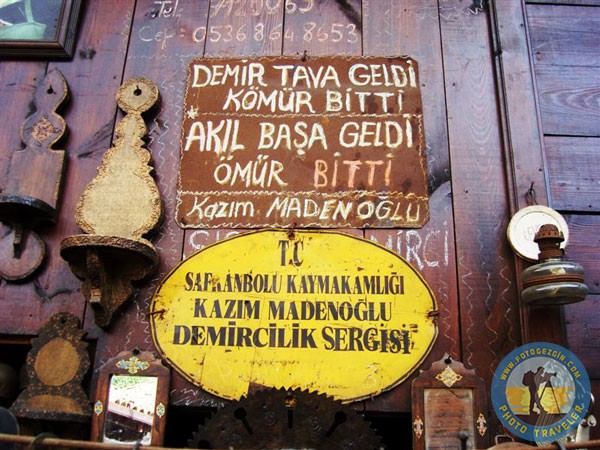 Tel:
Cep: 0536 864 8653
DEMİR TAVA GELDİ
KÖMÜR BİTTİ
AKIL BAŞA GELDİ
ÖMÜR BİTTİ
Kazım MADENOĞLU
T.C
SAFRANBOLU KAYMAKAMLIĞI
KAZIM MADENOĞLU
DEMİRCİLİK SERGİSİ
WWW.FOTOGEZGIN.COM
PHOTO TRAVELER